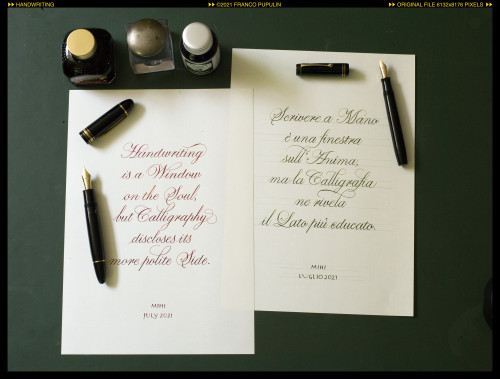 HANDWRITING
©2021 FRANCO PUPULIN
ORIGINAL FILE 6132x8176 PIXELS
Handwriting
is a Window
on the Soul,
but Calligraphy
discloses its
more polite Side.
MIHI
JULY 2021
Scrivere a Mano
è una finestra
sull'Anima,
ma la Calligrafia
ne rivela
il Lato più educato.
MIHI
LUGLIO 2021